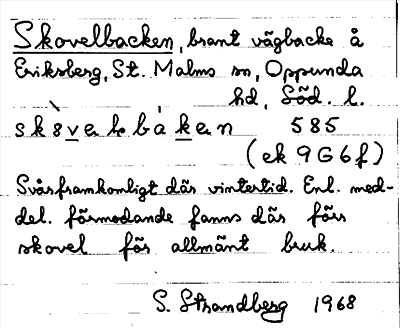 Skovelbacken, brant vägbacke å
Eriksberg, St. Malms sn, Oppunda
hd, Söd. l.
skòvelbákean 585
(ek 9G6f)
Svårframkomligt där vintertid. Enl. med-
del. förmodande fanns där förr
skovel för allmänt bruk.
S. Strandberg 1968